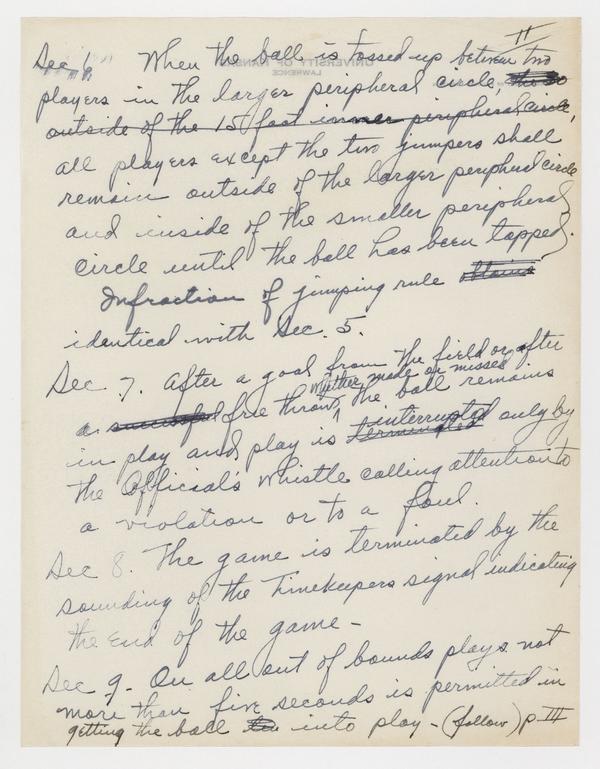 II
Sec 1. When the ball is tossed up between two
players in the larger peripheral circle,
outside of the 15 foot inner peripheral circle,
all players except the two jumpers shall
remain outside of the larger peripheral circle
and inside of the smaller peripheral
circle until the ball has been tapped.
Infraction of jumping rule obtains
identical with Sec. 5.
Sec 7. After a goal from the field or after
whether made or missed
a successful free throw, the ball remains
interrupted
in play and play is terminated only by
the Official's whistle calling attention to
a violation or to a foul.
Sec 8. The game is terminated by the
sounding of the Timekeepers signal indicating
the end of the game -
Sec 9. On all out of bounds plays not
more than five seconds is permitted in
getting the ball into play - (follow) p. III
UNIVERSITY OF KANSAS
LAWRENCE